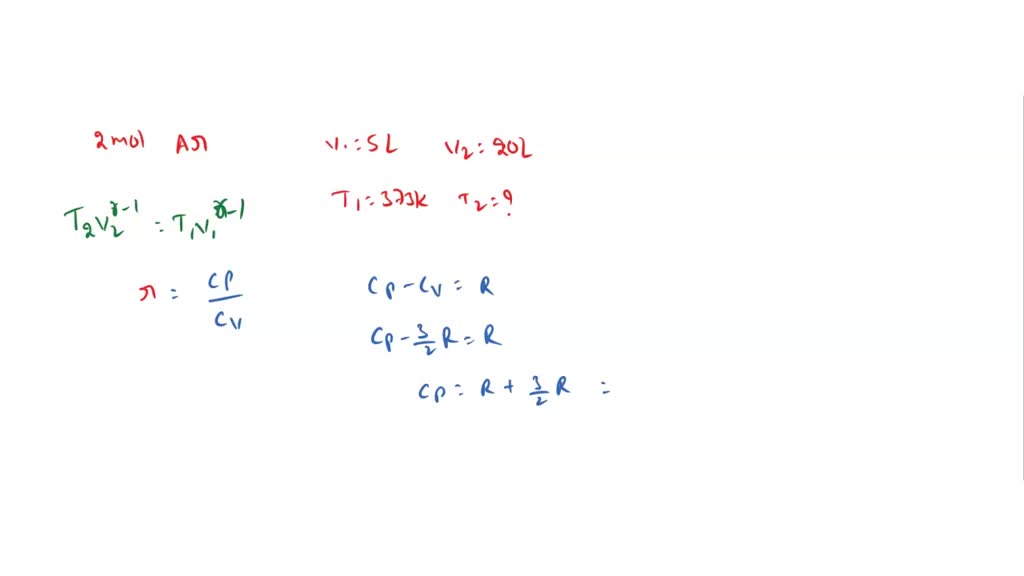 2 mol Ar V₁ = 5L V₂ = 20L
T₁ = 373K T₂ = ?
T₂V₂^γ-1 = T₁V₁^γ-1
r = Cp/Cv Cp - Cv = R
Cp - 3/2 R = R
Cp = R + 3/2 R =